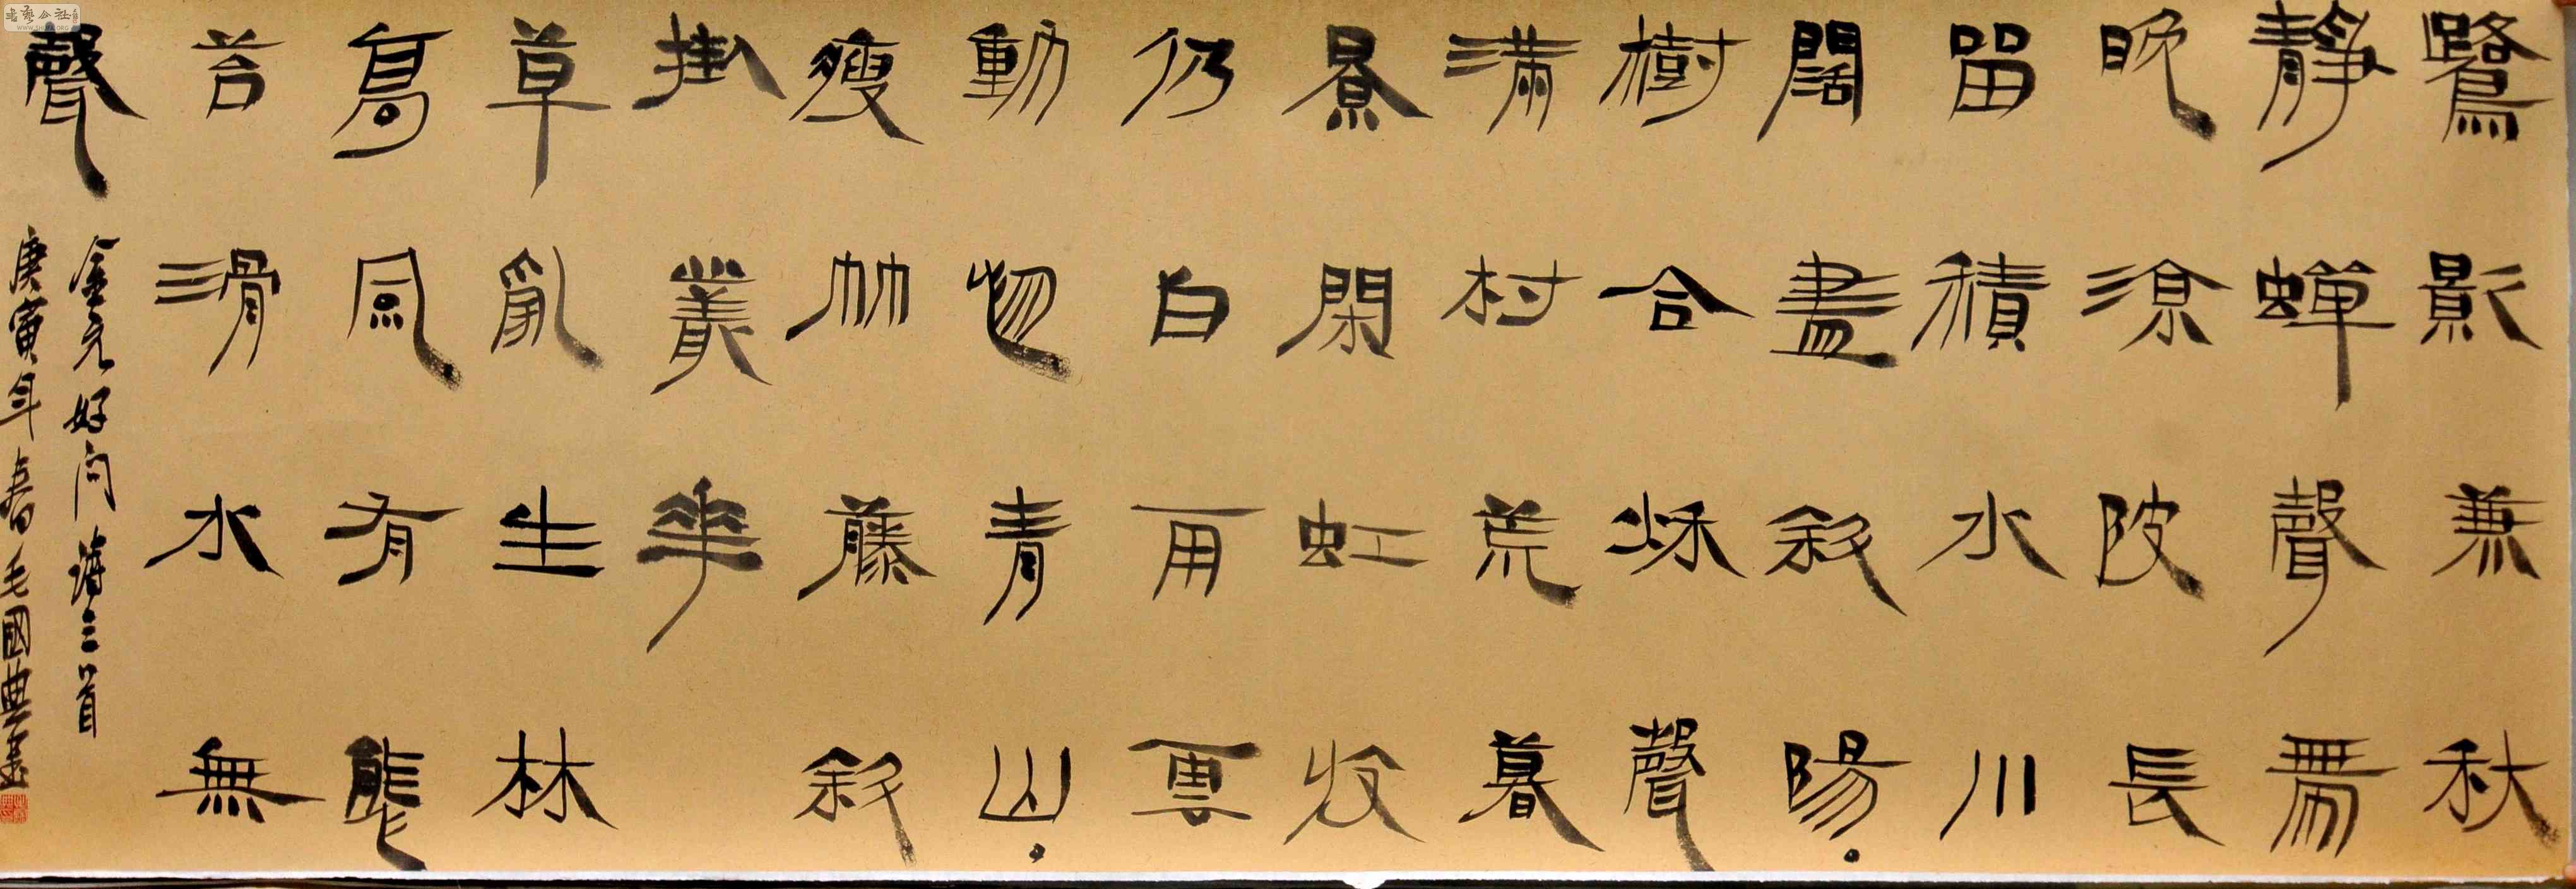 鷺影兼秋
靜蟬聲帶
晚涼陂長
留積水川
闊盡斜陽。
樹合秋聲
滿村荒暮
景閑虹收
仍白雨雲
動忽青山。
瘦竹藤斜
掛叢花
草亂生林
高風有態
苔滑水無
聲
金元好问詩三首
庚寅年春毛國典書